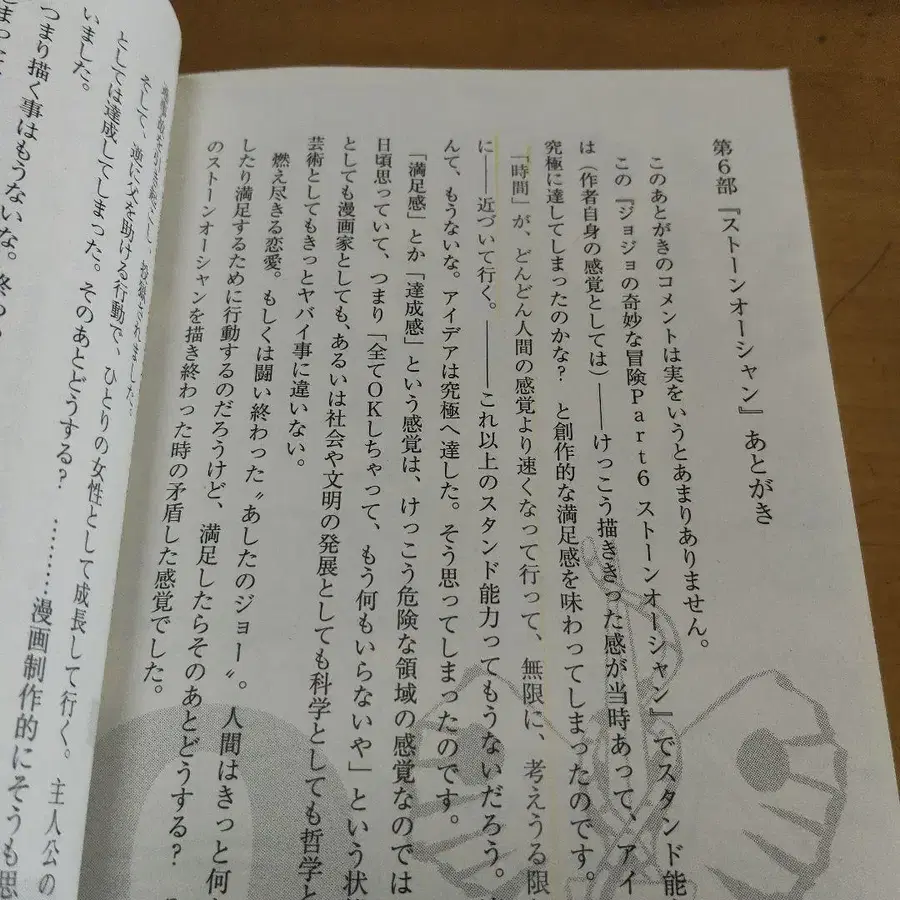 第6部『ストーンオーシャン』あとがき
このあとがきのコメントは実をいうとあまりありません。
この『ジョジョの奇妙な冒険Part6 ストーンオーシャン』でスタンド能
は（作者自身の感覚としては）――けっこう描ききった感が当時あって、アイ
究極に達してしまったのかな？ と創作的な満足感を味わってしまったのです。
「時間」が、どんどん人間の感覚より速くなって行って、無限に、考えうる限
に――近づいて行く。――――これ以上のスタンド能力ってもうないだろう。
んて、もうないな。アイデアは究極へ達した。そう思ってしまったのです。
「満足感」とか「達成感」という感覚は、けっこう危険な領域の感覚なのでは
日頃思っていて、つまり「全てOKしちゃって、もう何もいらないや」という状
としても漫画家としても、あるいは社会や文明の発展としても科学としても哲学と
芸術としてもきっとヤバイ事に違いない。
燃え尽きる恋愛。もしくは闘い終わった〝あしたのジョー〟。人間はきっと何か
したり満足するために行動するのだろうけど、満足したらそのあとどうする？
のストーンオーシャンを描き終わった時の矛盾した感覚でした。
そして、逆に父を助ける行動で、ひとりの女性として成長して行く。主人公の
としては達成してしまった。そのあとどうする？ ………漫画制作的にそうも思
いました。
つまり描く事はもうないな。